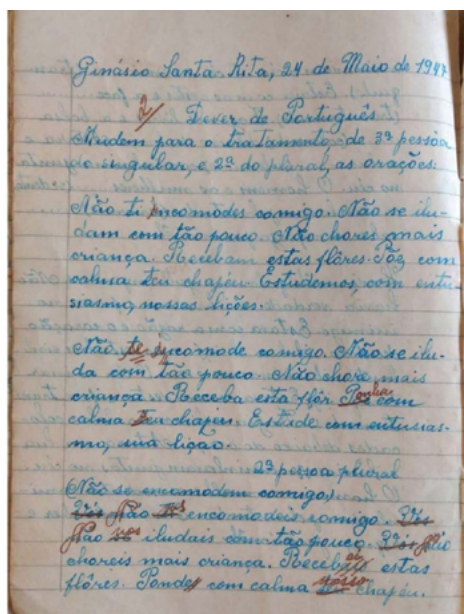 Ginásio Santa Rita, 24 de Maio de 1947
2/ Dever de Português
Mudem para o tratamento, de 3ª pessoa
do singular, e 2ª do plural, as orações:
Não ti encomodes comigo. Não se ilu-
dam com tão pouco. Não chores mais
criança. Recebam estas flôres. Põe com
calma teu chapéu. Estudemos, com entu
siasmo, nossas lições.
Não te encomode comigo. Não se ilu-
da com tão pouco. Não chore mais
criança. Receba esta flôr. Ponha com
calma seu chapéu. Estude com entusias-
mo, sua lição.
2ª pessoa plural
Não se encomodem comigo,
Vós Não vos encomodeis comigo. Vós
Não vos iludais com tão pouco. Vós Não
choreis mais criança. Recebei estas
flôres. Ponde com calma vosso chapéu.